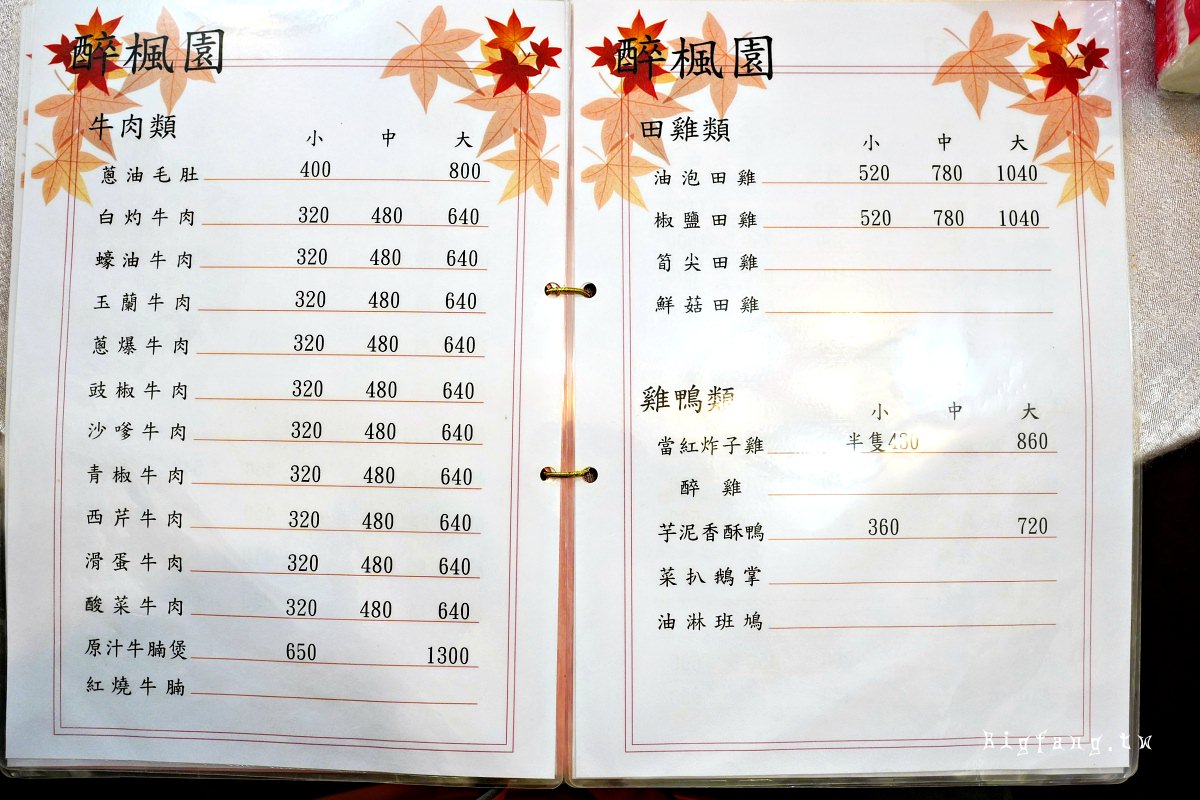 醉楓園
牛肉類 小 中 大
蔥油毛肚 400 800
白灼牛肉 320 480 640
蠔油牛肉 320 480 640
玉蘭牛肉 320 480 640
蔥爆牛肉 320 480 640
豉椒牛肉 320 480 640
沙嗲牛肉 320 480 640
青椒牛肉 320 480 640
西芹牛肉 320 480 640
滑蛋牛肉 320 480 640
酸菜牛肉 320 480 640
原汁牛腩煲 650 1300
紅燒牛腩
醉楓園
田雞類 小 中 大
油泡田雞 520 780 1040
椒鹽田雞 520 780 1040
筍尖田雞
鮮菇田雞
雞鴨類 小 中 大
當紅炸子雞 半隻430 860
醉雞
芋泥香酥鴨 360 720
菜扒鵝掌
油淋班鳩
Bigfang.tw